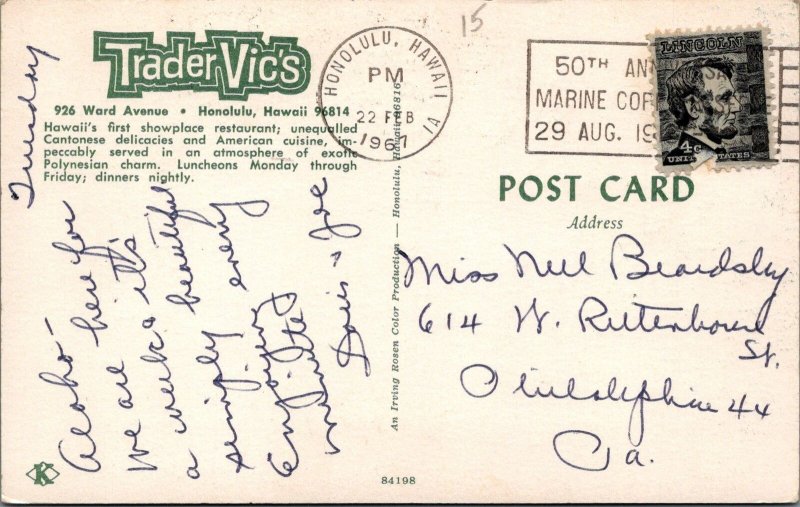 15
Trader Vic's
926 Ward Avenue • Honolulu, Hawaii 96814
Hawaii's first showplace restaurant; unequalled
Cantonese delicacies and American cuisine, im-
peccably served in an atmosphere of exotic
Polynesian charm. Luncheons Monday through
Friday; dinners nightly.
Tuesday
Aloha-
We are here for
a week & it's
simply beautiful
Enjoying every
minute
Doris & Joe
K
An Irving Rosen Color Production — Honolulu, Hawaii 96816
84198
HONOLULU, HAWAII
PM
22 FEB
1967
1A
50TH AN
MARINE COR
29 AUG. 19
LINCOLN
4c
UNITED STATES
POST CARD
Address
Miss Nell Beardsley
614 W. Rittenhouse
St.
Philadelphia 44
Pa.